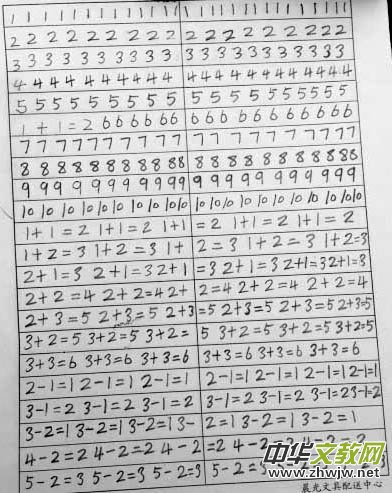 1 1 1 1 1 1 1 1 1 1 1 1 1 1 1 1 1 1 1 1
2 2 2 2 2 2 2 2 2 2 2 2 2 2 2 2 2 2 2 2
3 3 3 3 3 3 3 3 3 3 3 3 3 3 3 3 3 3 3 3
4 4 4 4 4 4 4 4 4 4 4 4 4 4 4 4 4 4 4 4
5 5 5 5 5 5 5 5 5 5 5 5 5 5 5 5 5 5 5
1 + 1 = 2 6 6 6 6 6 6 6 6 6 6 6 6 6 6 6 6
7 7 7 7 7 7 7 7 7 7 7 7 7 7 7 7 7 7 7 7
8 8 8 8 8 8 8 8 8 8 8 8 8 8 8 8 8 8 8 8 8 8
9 9 9 9 9 9 9 9 9 9 9 9 9 9 9 9 9 9 9 9
10 10 10 10 10 10 10 10 10 10 10 10 10 10 10 10 10
1+1 = 2 1+1 = 2 1+1 = 2 1+1 = 2 1+1 = 2
1+2 = 3 1+2 = 3 1+2 = 3 1+2 = 3 1+2=3
2+1 = 3 2+1 = 3 2+1 = 3 2+1 = 3 2+1=3 2+1=3
2+2 = 4 2+2 = 4 2+2 = 4 2+2 = 4 2+2 = 4
2+3 = 5 2+3 = 5 2+3 = 5 2+3 = 5 2+3 = 5 2+3=5
3+2 = 5 3+2 = 5 3+2 = 5 3+2 = 5 3+2 = 5 3+2=5
3+3 = 6 3+3 = 6 3+3 = 6 3+3 = 6 3+3 = 6 3+3 = 6
2-1 = 1 2-1 = 1 2-1 = 1 2-1 = 1 2-1 = 1 2-1 = 1 2-1=1
3-1 = 2 3-1 = 2 3-1 = 2 3-1 = 2 3-1 = 2 3-1 = 2 3-1=2
3-2 = 1 3-2 = 1 3-2 = 1 3-2 = 1 3-2 = 1 3-2 = 1
4-2 = 2 4-2 = 2 4-2 = 2 4-2
5-2 = 3 5-2 = 3 5-2 = 3 5-2 = 3
中华文教网
www.zhwjw.net
晨光文具配送中心